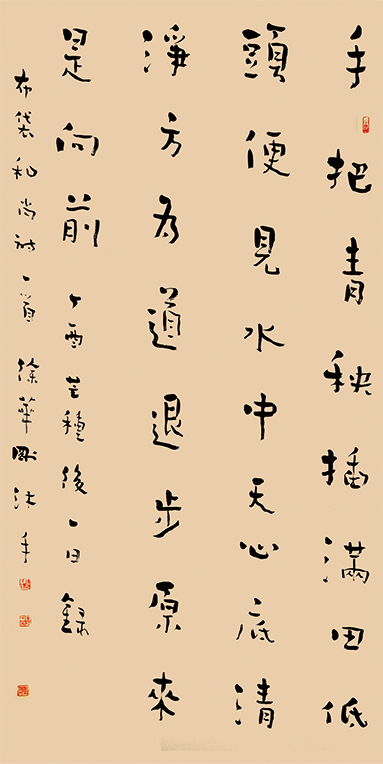 手把青秧插滿田低
頭便見水中天心底清
淨方為道退步原來
是向前 丁酉芒種後一日錄
布袋和尚詩一首 徐華剛沐手